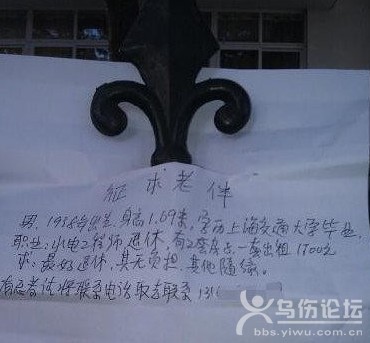 征求老伴
男. 1938年出生. 身高1.69米, 学历上海交通大学毕业.
职业: 水电工程师退休. 有2套房子. 一套出租1700元
求: 最好退休, 其无负担. 其他随缘.
有意者请将联系电话 联系 1316
乌伤论坛
bbs.yiwu.com.cn